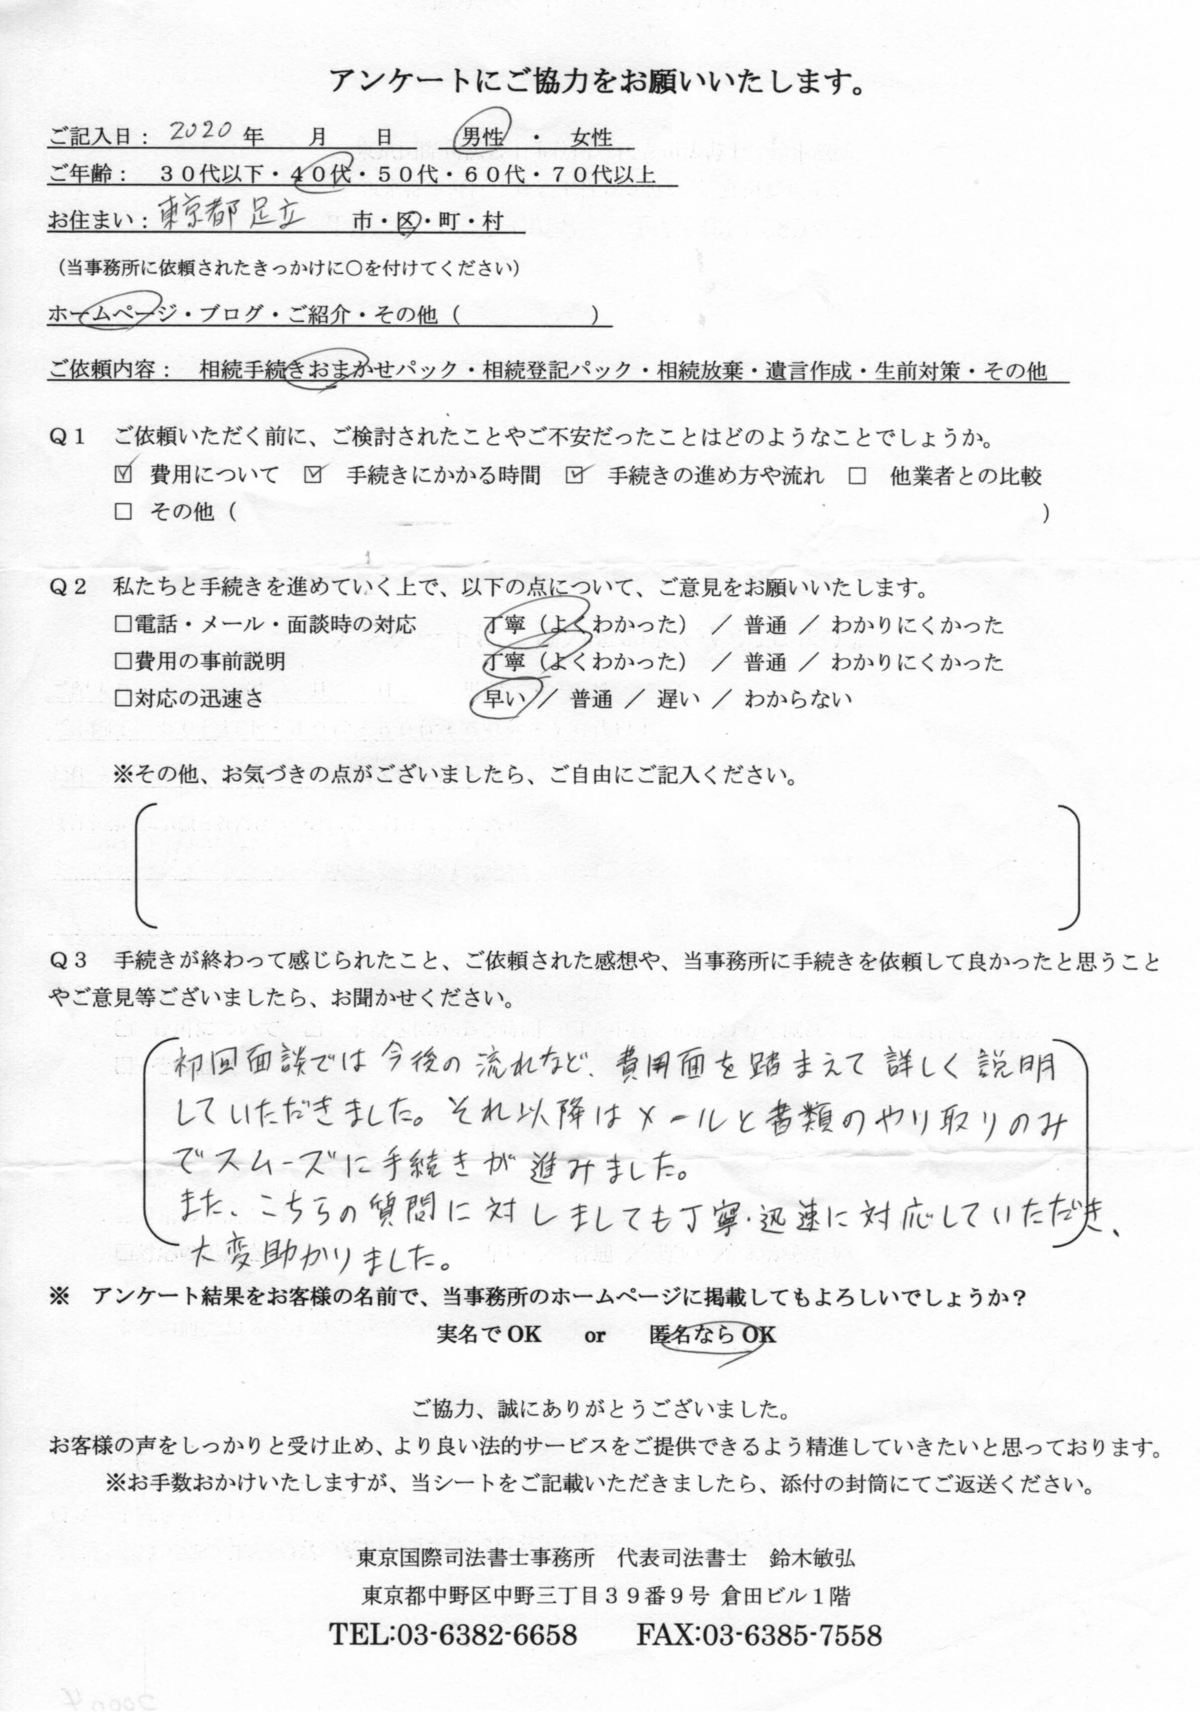 アンケートにご協力をお願いいたします。
ご記入日： 2020 年　　月　　日　　男性　・　女性
ご年齢：　３０代以下・４０代・５０代・６０代・７０代以上
お住まい：東京都足立　　市・区・町・村
（当事務所に依頼されたきっかけに○を付けてください）
ホームページ・ブログ・ご紹介・その他（　　　　　　）
ご依頼内容：　相続手続きおまかせパック・相続登記パック・相続放棄・遺言作成・生前対策・その他
Ｑ１　ご依頼いただく前に、ご検討されたことやご不安だったことはどのようなことでしょうか。
☑ 費用について　☑ 手続きにかかる時間　☑ 手続きの進め方や流れ　□ 他業者との比較
□ その他（　　　　　　　　　　　　　　　　　　）
Ｑ２　私たちと手続きを進めていく上で、以下の点について、ご意見をお願いいたします。
□電話・メール・面談時の対応　　　丁寧（よくわかった）　／　普通　／　わかりにくかった
□費用の事前説明　　　丁寧（よくわかった）　／　普通　／　わかりにくかった
□対応の迅速さ　　　早い　／　普通　／　遅い　／　わからない
※その他、お気づきの点がございましたら、ご自由にご記入ください。
Ｑ３　手続きが終わって感じられたこと、ご依頼された感想や、当事務所に手続きを依頼して良かったと思うこと
やご意見等ございましたら、お聞かせください。
初回面談では今後の流れなど、費用面を踏まえて詳しく説明
していただきました。それ以降はメールと書類のやり取りのみ
でスムーズに手続きが進みました。
また、こちらの質問に対しましても丁寧・迅速に対応していただき、
大変助かりました。
※　アンケート結果をお客様の名前で、当事務所のホームページに掲載してもよろしいでしょうか？
実名で OK　　or　　匿名なら OK
ご協力、誠にありがとうございました。
お客様の声をしっかりと受け止め、より良い法的サービスをご提供できるよう精進していきたいと思っております。
※お手数おかけいたしますが、当シートをご記載いただきましたら、添付の封筒にてご返送ください。
東京国際司法書士事務所　代表司法書士　鈴木敏弘
東京都中野区中野三丁目３９番９号 倉田ビル１階
TEL:03-6382-6658　　FAX:03-6385-7558